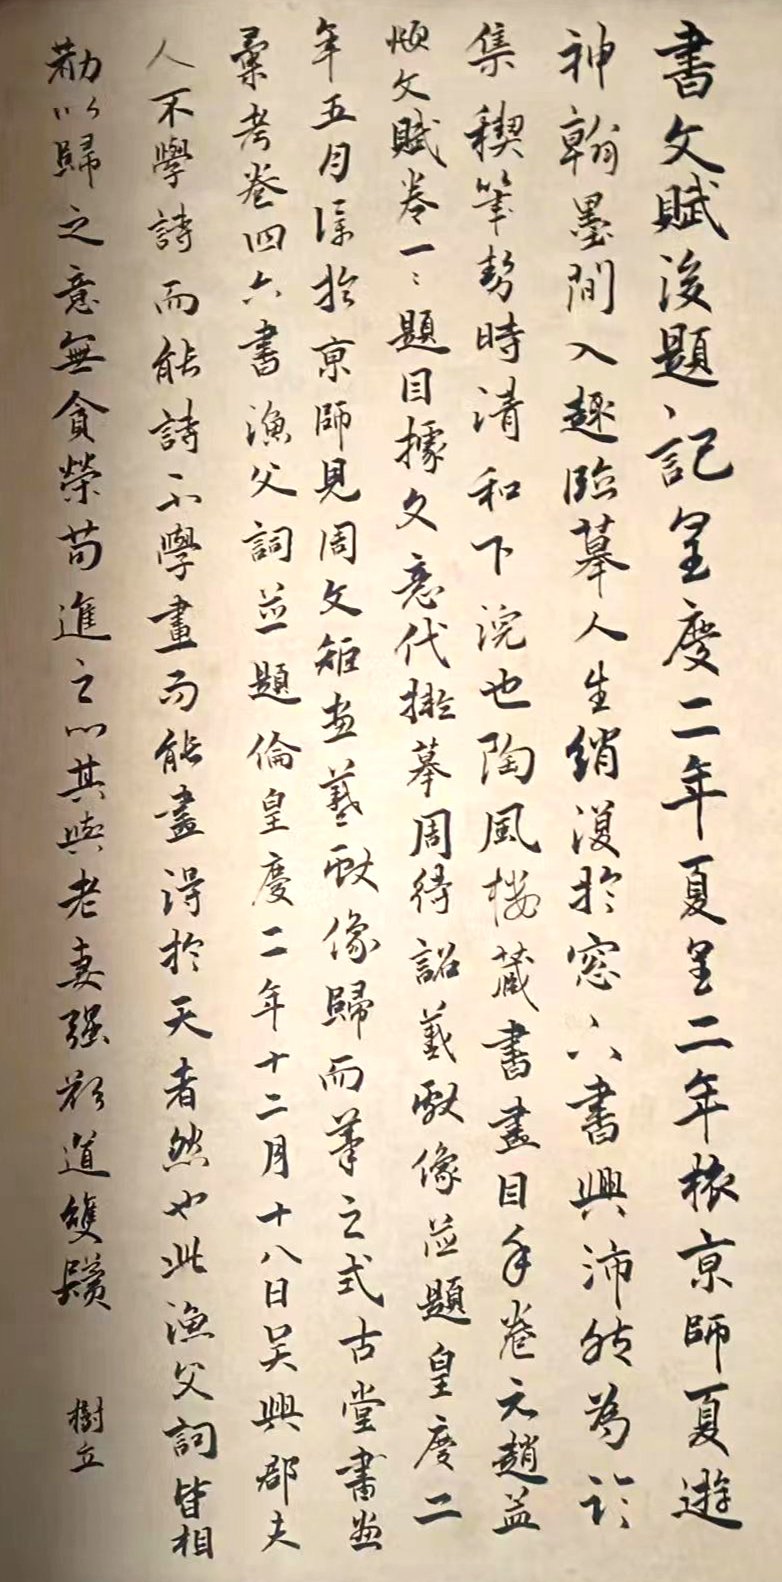 書文賦後題、記皇慶二年夏皇二年核京師夏遊
神翰墨間入趣臨摹人生綃復於窓八書興沛然為
集稧筆勢時清和下浣也陶風楼藏書畫目手卷元趙孟
頫文賦卷一、題目據文意代擬摹周待詔羲獻像並題皇慶二
年五月於京師見周文矩畫羲獻像歸而筆之式古堂書畫
彙考卷四六書漁父詞並題倫皇慶二年十二月十八日吳興郡夫
人不學詩而能詩不學畫而能畫得於天者然也此漁父詞皆相
勸以歸之意無貪榮苟進之心其與老妻強顏道雙鬢
樹立